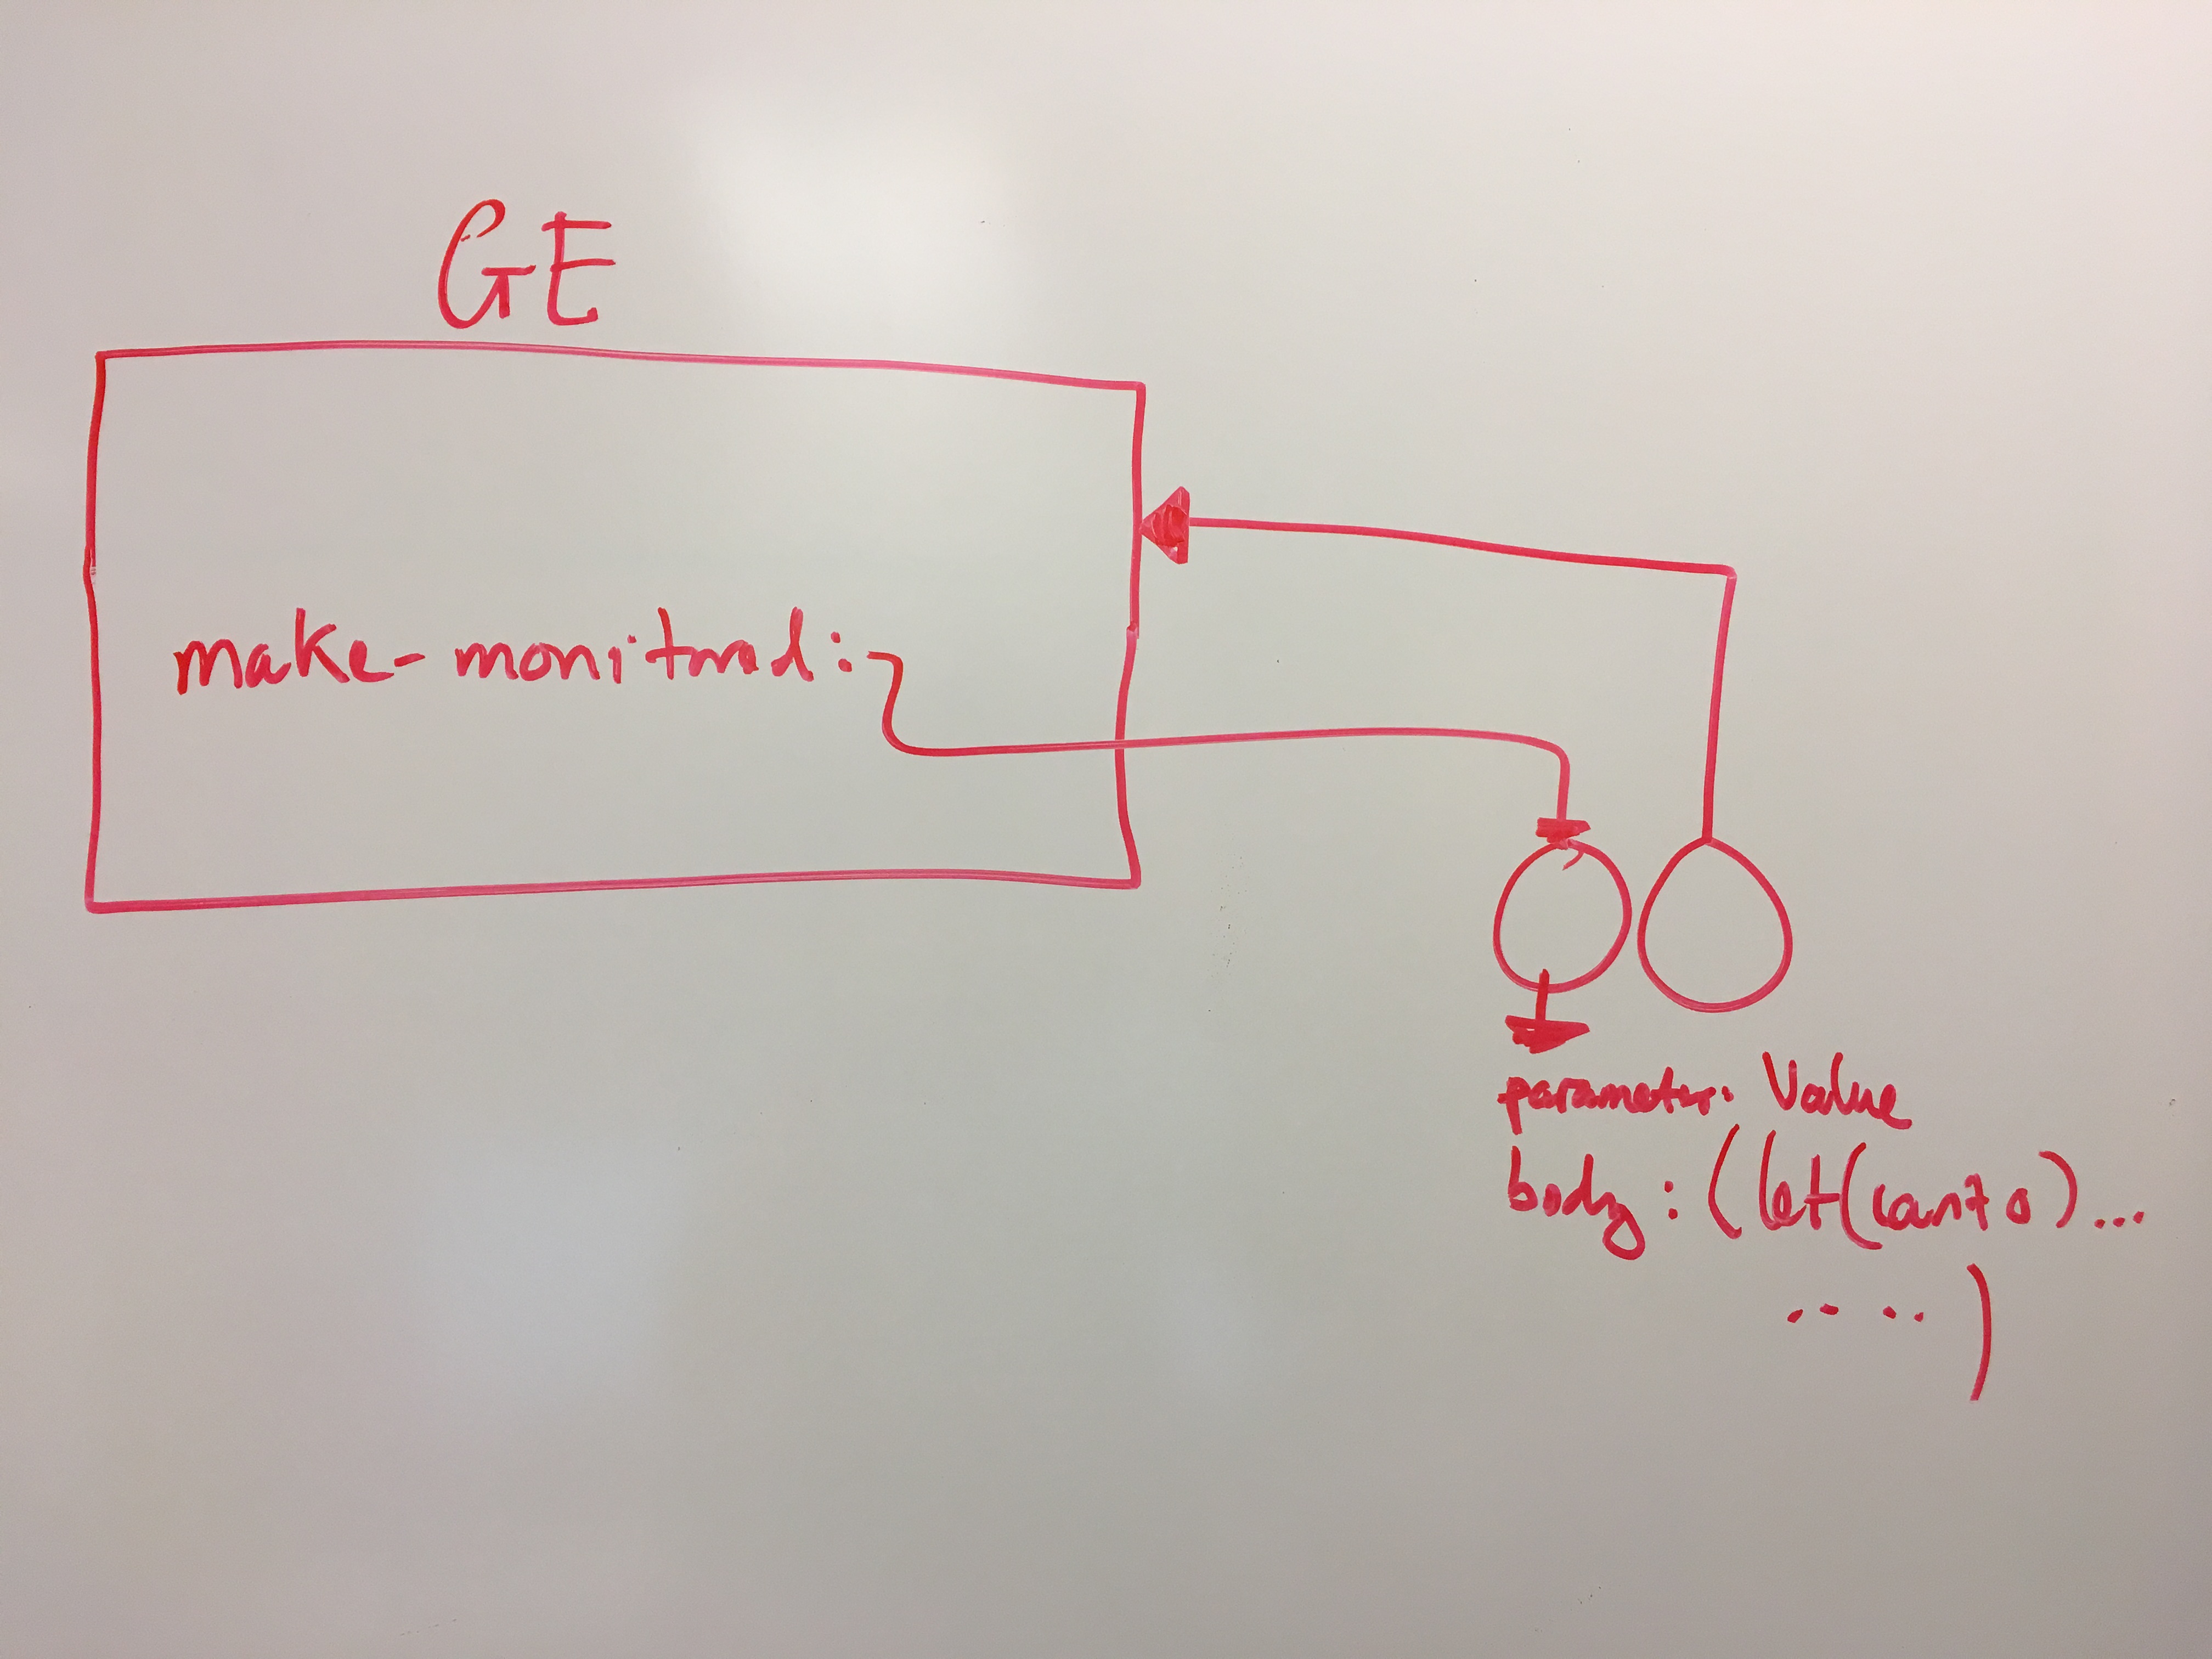 GE
make-monitored:
parameter: Value
body: (let(cant 0)...
.. ..)